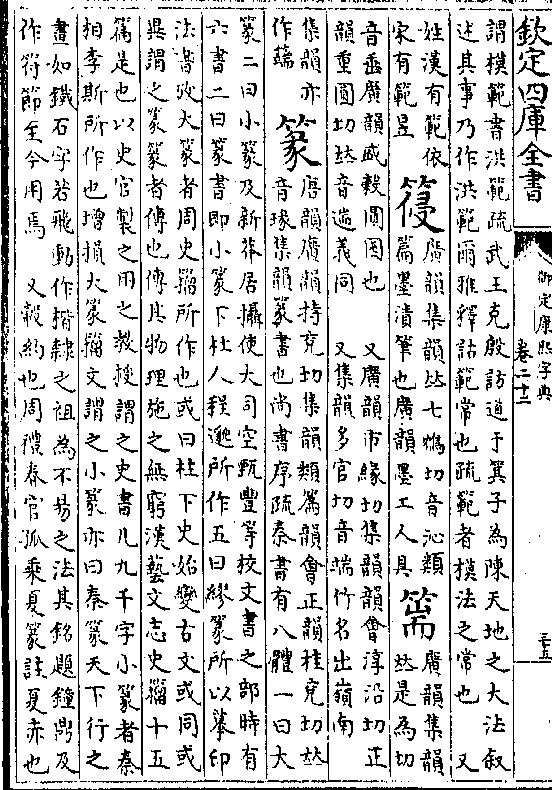 欽定四庫全書
御定康熙字典
卷二十二
三十五
謂模範書洪範疏武王克殷訪道于箕子為陳天地之大法叙
述其事乃作洪範爾雅釋詁範常也疏範者模法之常也 又
姓漢有範依
宋有範昱
𥰲
廣韻集韻𠀤七鴆切音沁類
篇墨漬筆也廣韻墨工人具
篅
廣韻集韻
𠀤是為切
音垂廣韻盛穀圓囤也 又廣韻市緣切集韻韻會淳沿切正
韻重圓切𠀤音遄義同 又集韻多官切音端竹名出嶺南
集韻亦
作䉋
篆
唐韻廣韻持兗切集韻類篇韻會正韻柱兗切𠀤
音瑑集韻篆書也尚書序疏秦書有八體一曰大
篆二曰小篆及新莽居攝使大司空甄豐等校文書之部時有
六書二曰篆書即小篆下杜人程邈所作五曰繆篆所以摹印
法書攷大篆者周史籀所作也或曰柱下史始變古文或同或
異謂之篆篆者傳也傳其物理施之無窮漢藝文志史籀十五
篇是也以史官製之用之教授謂之史書凡九千字小篆者秦
相李斯所作也增損大篆籀文謂之小篆亦曰秦篆天下行之
畫如鐵石字若飛動作楷隸之祖為不易之法其銘題鐘鼎及
作符節至今用焉 又轂約也周禮春官孤乘夏篆註夏赤也